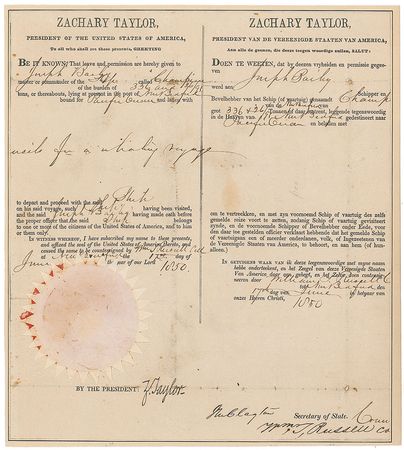 ZACHARY TAYLOR,
PRESIDENT OF THE UNITED STATES OF AMERICA,
To all who shall see these presents, GREETING
BE IT KNOWN, That leave and permission are hereby given to
Joseph Bailey
master or commander of the Ship called Champion
of the burden of 336
tons, or thereabouts, lying at present in the port of New Bedford
bound for Pacific Ocean and laden with
for a whaling voyage
to depart and proceed with the said Ship
on his said voyage, such Ship having been visited,
and the said Joseph Bailey having made oath before
the proper officer that the said Ship belongs
to one or more of the citizens of the United States of America, and to
them only.
IN WITNESS WHEREOF, I have subscribed my name to these presents,
and affixed the seal of the United States of America thereto, and
caused the same to be countersigned by Wm T. Russell Coll
at New Bedford the 17th day of
June in the year of our Lord
1850.
BY THE PRESIDENT: Z. Taylor
ZACHARY TAYLOR,
PRESIDENT VAN DE VEREENIGDE STAATEN VAN AMERICA,
Aan alle de geenen, die deeze tegenwoordige zullen, SALUT:
DOEN TE WEETEN, dat by deezen vryheiden en permissie gegee-
ven Joseph Bailey
Schipper en
Bevelhebber van het Schip (of vaartuig) genaamdt Champion
groot 336 Tonnen of daar omtrent, leggende tegenwoordig
in de Haven van New Bedford gedestineert naar
Pacific Ocean en beladen met
om te vertrekken, en met zyn voornoemd Schip of vaartuig des zelfs
gemelde reize voort te zetten, zodanig Schip of vaartuig gevisiteert
zynde, en de voornoemde Schipper of Bevelhebber onder Eede, voor
den daar toe gestelden officier verklaart hebbende, dat het gemelde Schip
of vaartuig aan een of meerder onderdaanen, volk, of Ingezeetenen van
de Vereenigde Staaten van America, is behoort, en aan hem (of hun-
alleen.)
IN GETUIGEN WAAR VAN ik deeze tegenwoordige met myne naam
hebbe ondertekent, en het Zeegel van deeze Vereenigde Staaten
Van America daar aan gehegt, en het Zelve laten contrasig-
neeren door William T. Russell C
tot New Bedford den
17th dag van June in het jaar van
onzes Heeren Christi,
1850
Secretary of State.
Wm T. Russell Co